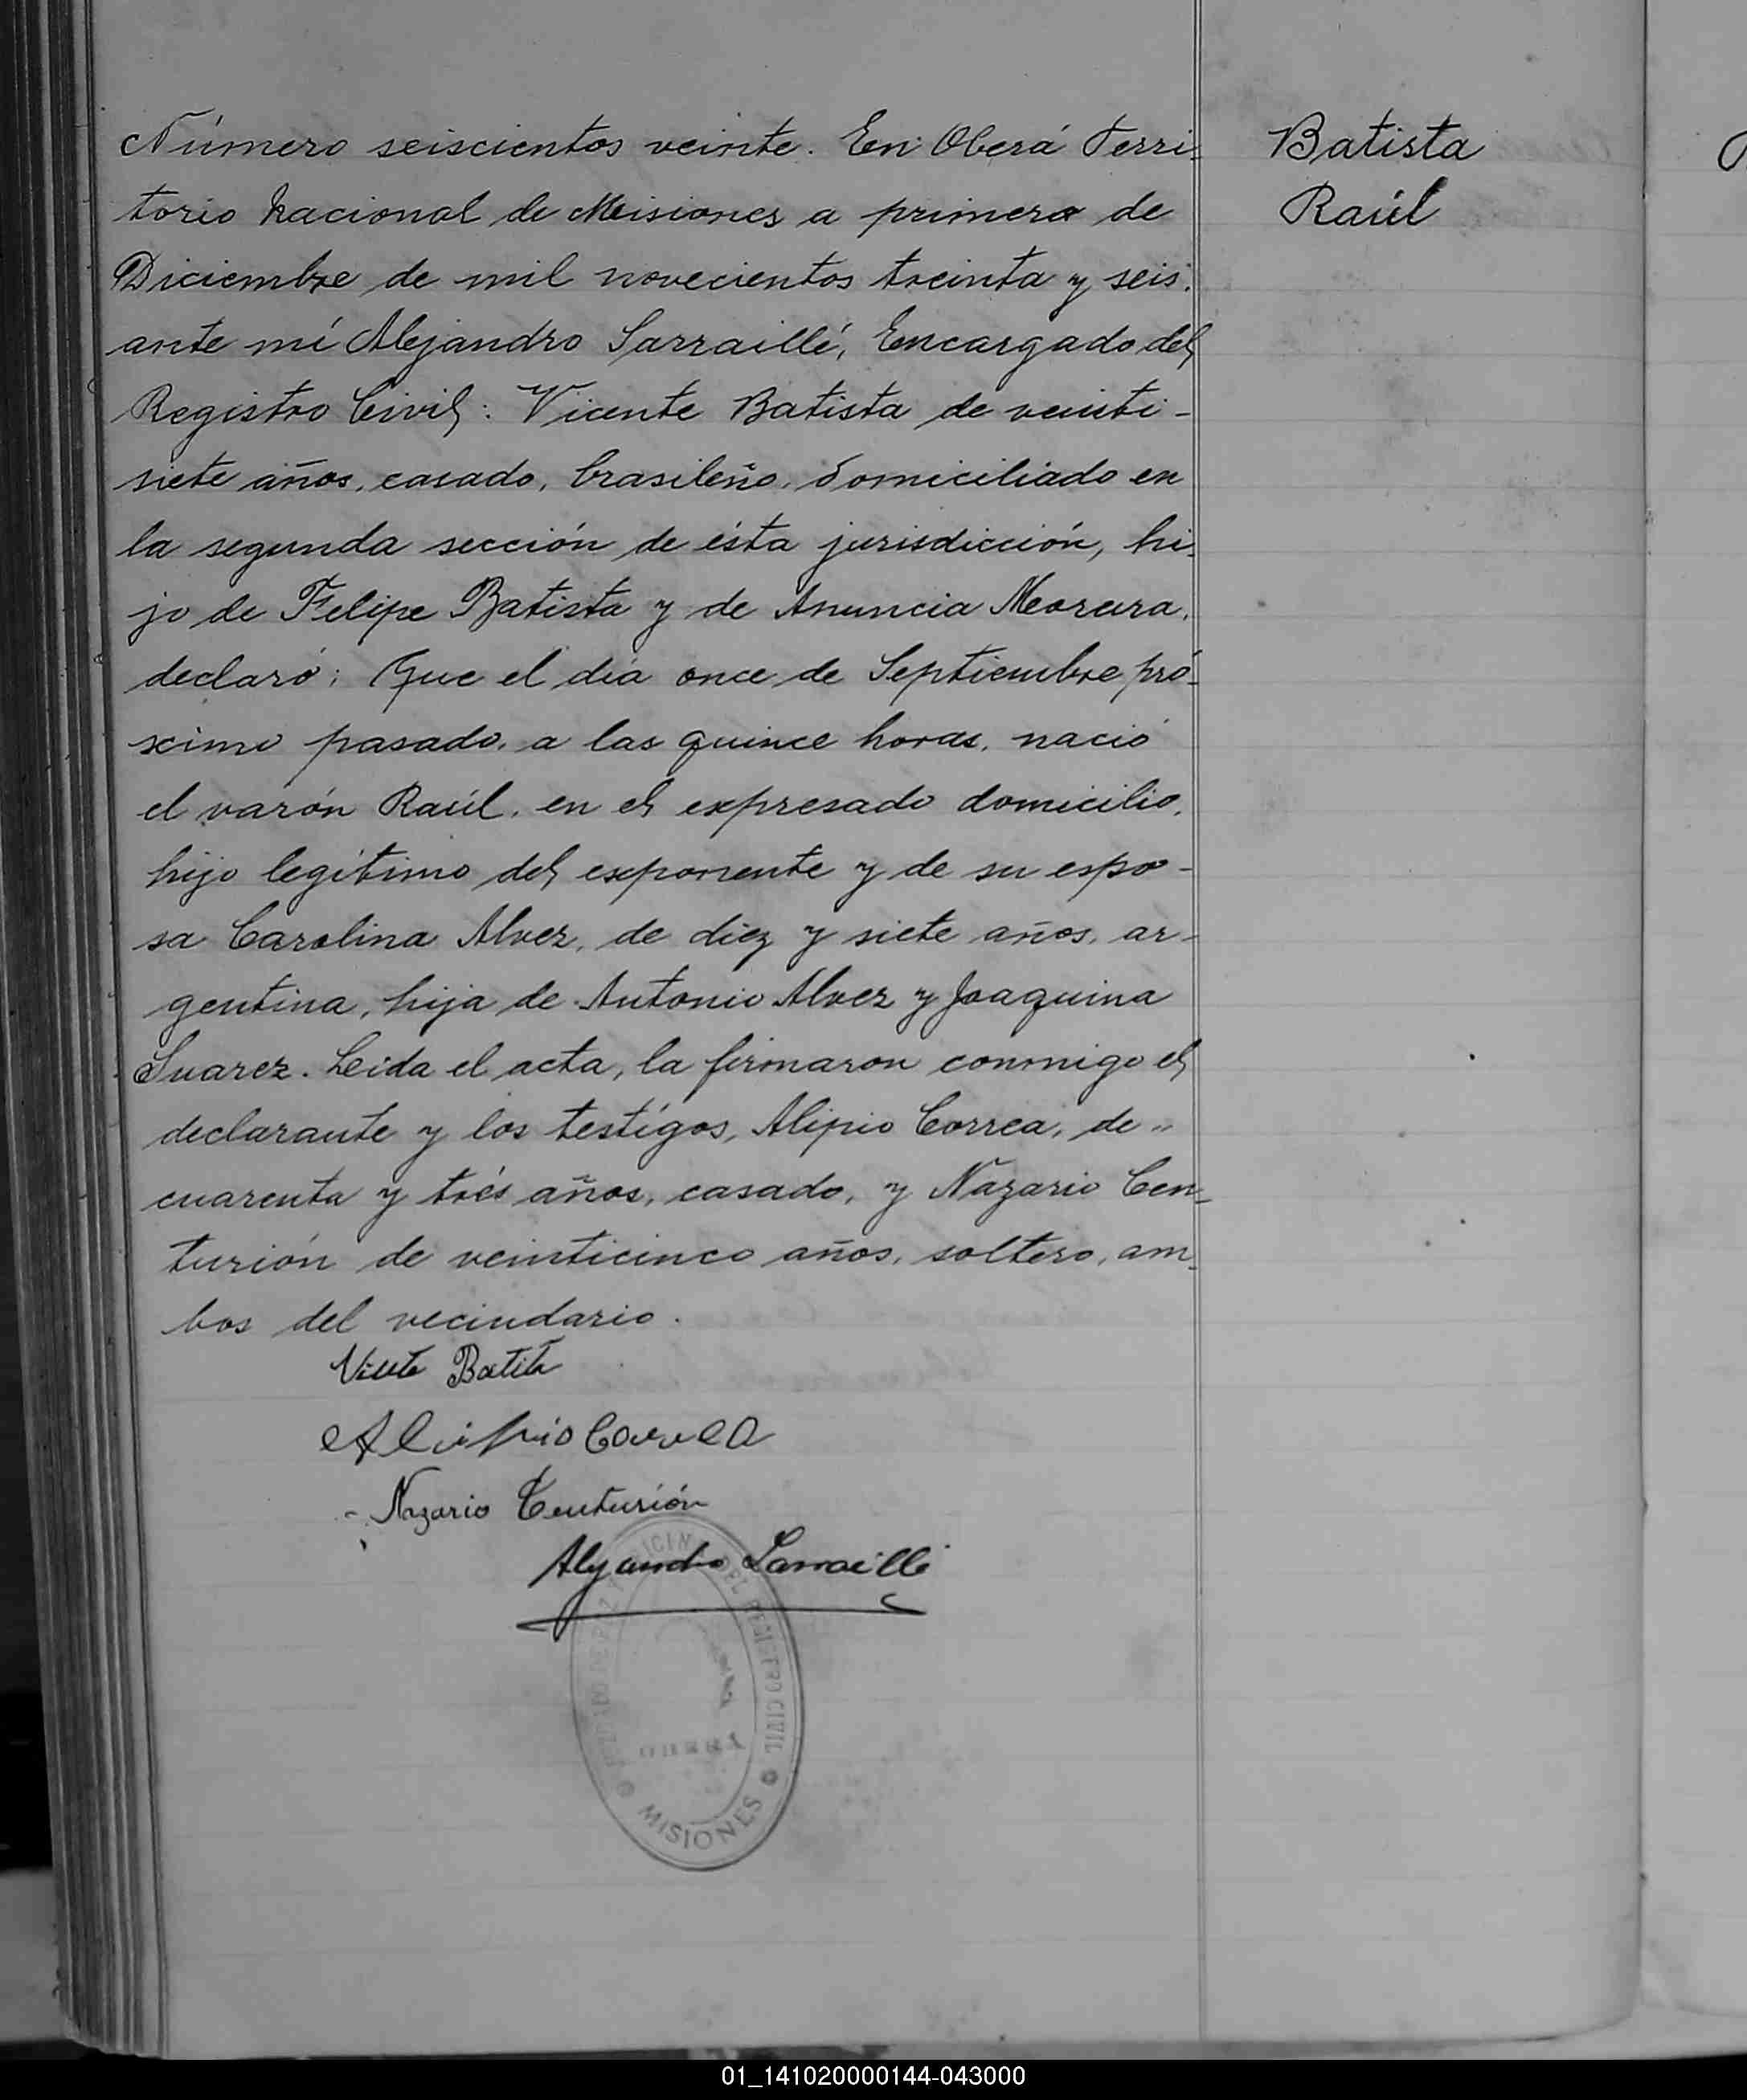 Número seiscientos veinte. En Oberá Terri-
torio Nacional de Misiones a primero de
Diciembre de mil novecientos treinta y seis.
ante mí Alejandro Sarraillé, Encargado del
Registro Civil: Vicente Batista de veinti-
siete años, casado, brasileño, domiciliado en
la segunda sección de ésta jurisdicción, hi-
jo de Felipe Batista y de Anuncia Moreira,
declaró: Que el día once de Septiembre pró-
ximo pasado, a las quince horas, nació
el varón Raúl, en el expresado domicilio,
hijo legítimo del exponente y de su espo-
sa Carolina Alvez, de diez y siete años, ar-
gentina, hija de Antonio Alvez y Joaquina
Suarez. Leida el acta, la firmaron conmigo el
declarante y los testigos, Alipio Correa, de "
cuarenta y trés años, casado, y Nazario Cen-
turión de veinticinco años, soltero, am-
bos del vecindario.
Batista
Raúl
Vicente Batista
Alipio Correa
- Nazario Centurión
Alejandro Sarraillé
OFICINA DEL REGISTRO CIVIL
MISIONES
01_141020000144-043000